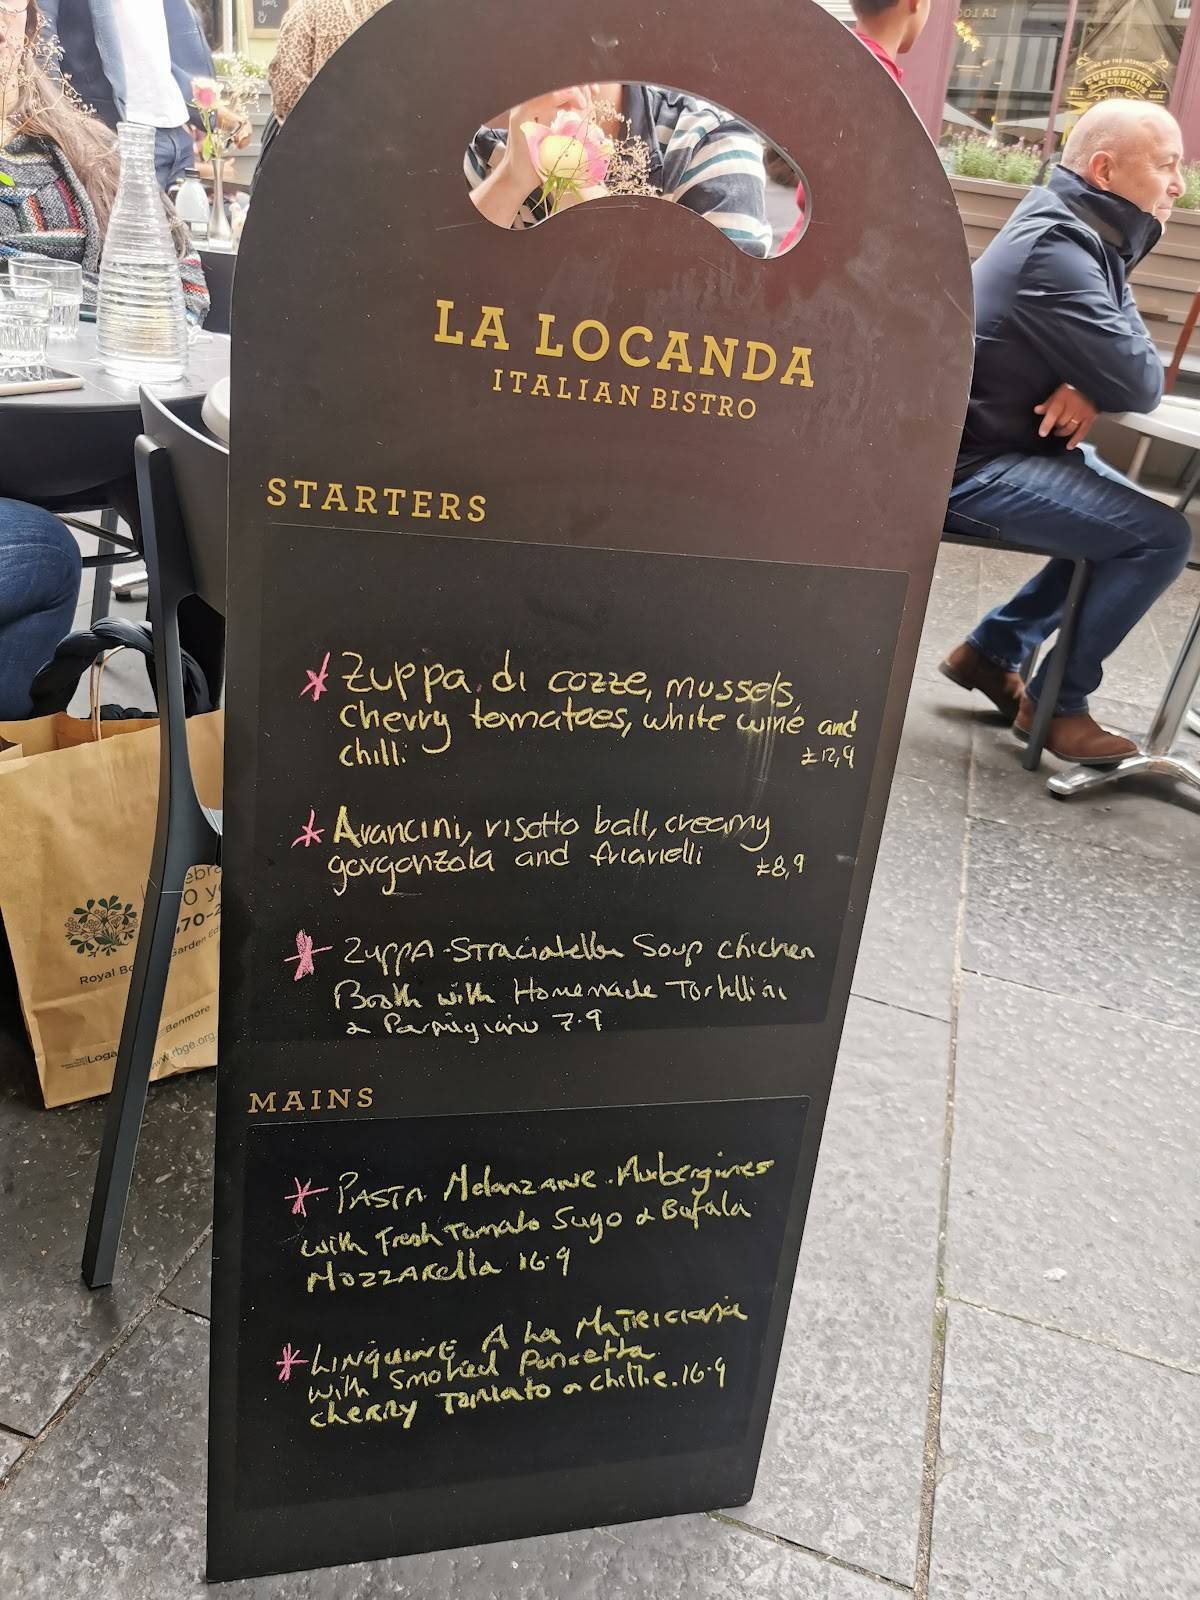 LA LOCANDA
ITALIAN BISTRO
STARTERS
Zuppa di cozze, mussels,
cherry tomatoes, white wine and
chilli.
£12,9
Arancini, risotto ball, creamy
gorgonzola and friarielli £8,9
Zuppa - Straciatella Soup chicken
Broth with Homemade Tortellini
& Parmigiano 7.9
MAINS
PASTA Melanzane. Aubergines
with Fresh Tomato Sugo & Bufala
Mozzarella 16.9
LINGUINE A La MATRICIANA
with Smoked Pancetta
cherry Tomato & chillie. 16.9
CURIOSITIES
CURIOUS
Royal Bo
Garden Ed
Benmore
Loga
www.rbge.org